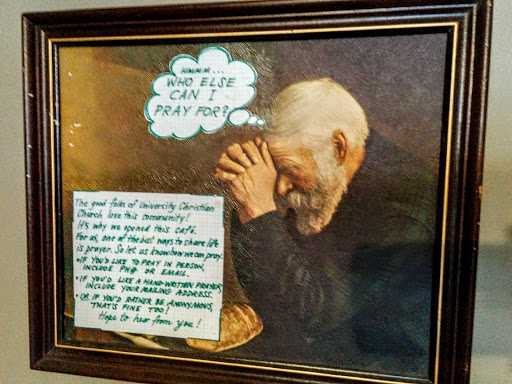 HMMM...
WHO ELSE
CAN I
PRAY FOR?
The good folks of University Christian
Church love this community!
It's why we opened this café.
For us, one of the best ways to share life
is prayer. So let us know how we can pray.
• IF YOU'D LIKE TO PRAY IN PERSON,
INCLUDE PH# OR EMAIL.
• IF YOU'D LIKE A HAND-WRITTEN PRAYER,
INCLUDE YOUR MAILING ADDRESS.
• OR IF YOU'D RATHER BE ANONYMOUS,
THAT'S FINE TOO!
Hope to hear from you!